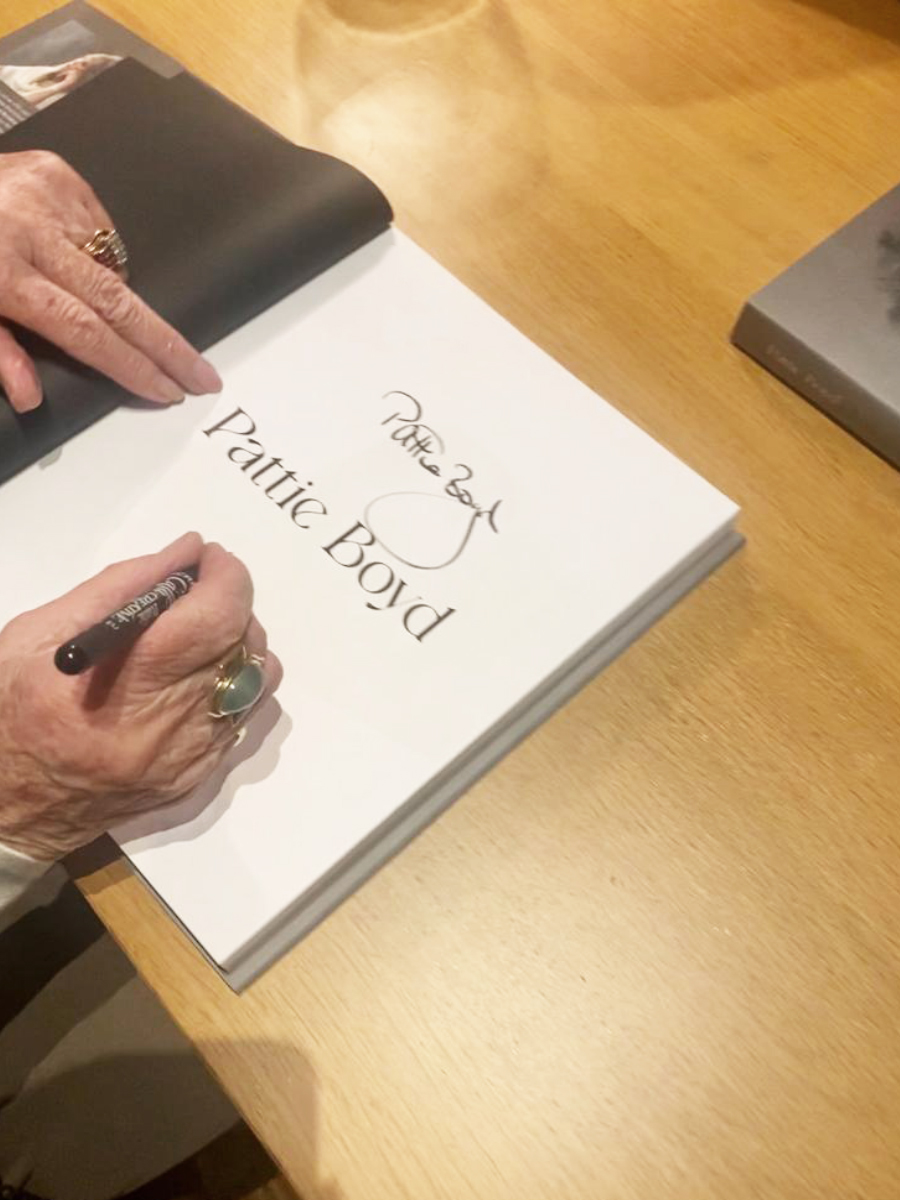 Pattie Boyd
Pattie Boyd